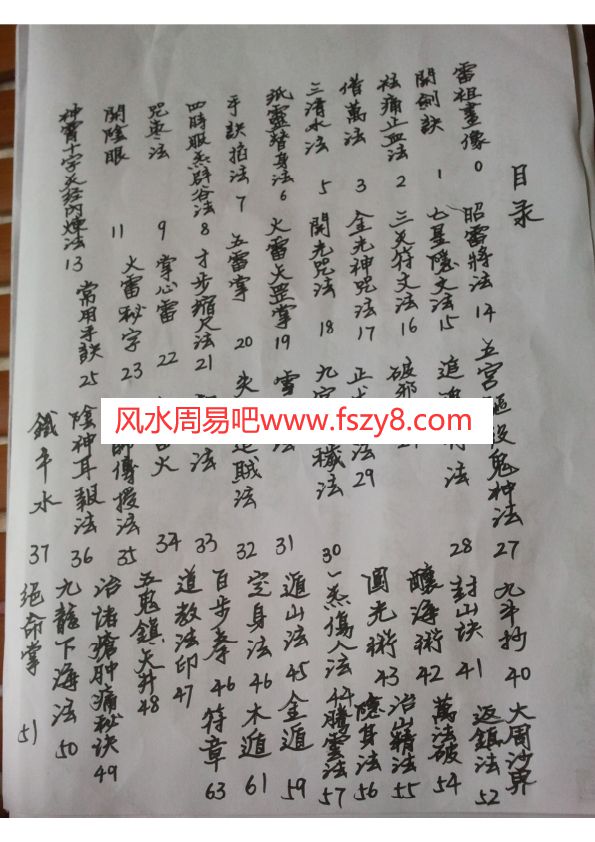 目录
雷祖畫像 0
開劍訣 1
祛痛止血法 2
借萬法 3
三清水法 5
紙靈替身法 6
手訣招法 7
四時服炁辟谷法 8
咒枣法 9
開陰眼 11
神霄十字天經內煉法 13
昭雷將法 14
七星隱文法 15
三天符文法 16
金光神咒法 17
開光咒法 18
火雷火罡掌 19
五雷掌 20
才步縮尺法 21
掌心雷 22
火雷秘字 23
常用手訣 25
五宮驅役鬼神法 27
追 法 28
破邪
正 法 29
九 穢法 30
雪 法 31
失 賊法 32
法 33
火 34
師傳授法 35
陰神耳報法 36
鐵牛水 37
九斗抄 40
封山訣 41
釀海術 42
圓光術 43
一炁傷人法 44
遁山法 45
定身法 46
百步拳 46
道教法印 47
五鬼鎮天井 48
治諸瘡肿痛秘诀 49
九龍下海法 50
絕命掌 51
大周沙界
返鎮法 52
萬法破 54
治山精法 55
隱身法 56
騰雲法 57
金遁 59
木遁 61
符章 63
风水周易吧www.fszy8.com